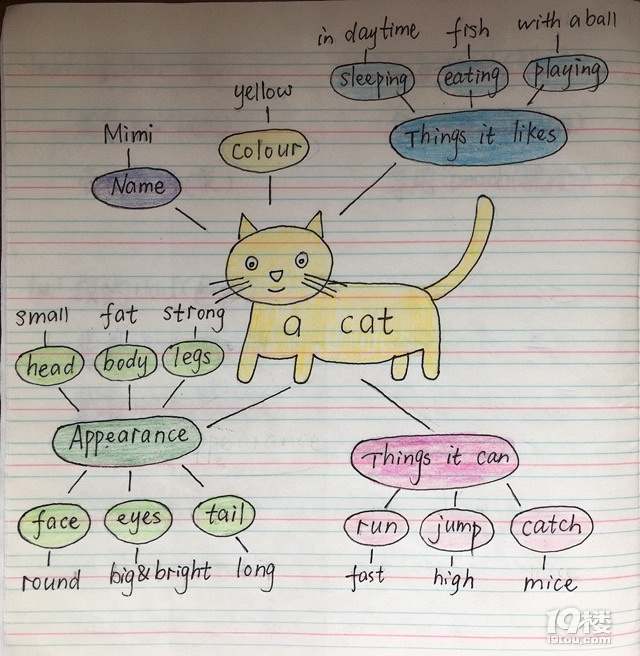 in daytime
fish
with a ball
sleeping
eating
playing
yellow
Things it likes
Mimi
Colour
Name
a cat
small
fat
strong
head
body
legs
Appearance
Things it can
face
eyes
tail
run
jump
catch
round
big&bright
long
fast
high
mice
19楼
19lou.com